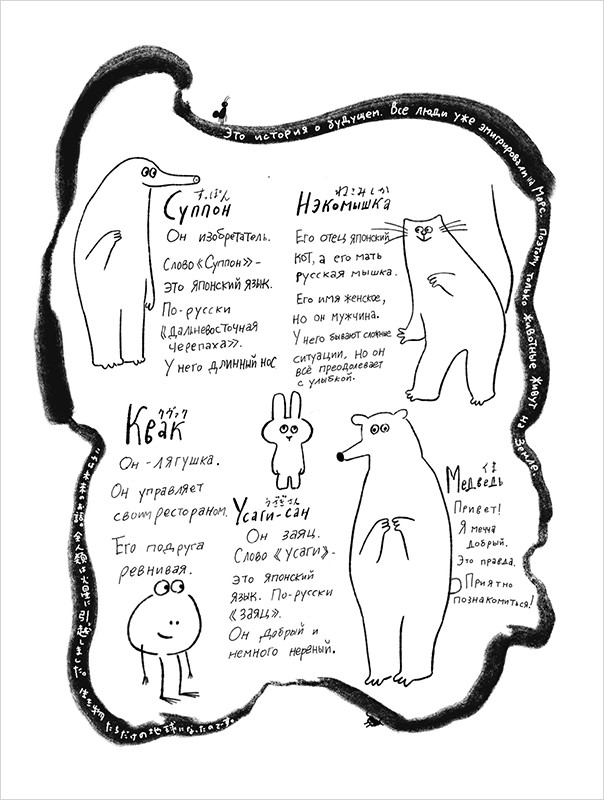 Это история о будущем. Все люди уже эмигрировали на Марс. Поэтому только животные живут на Земле.
すっぽん
Суппон
Он изобретатель.
Слово «Суппон» -
это японский язык.
По-русски
«дальневосточная
черепаха».
У него длинный нос
ねこみしか
Нэкомышка
Его отец японский
кот, а его мать
русская мышка.
Его имя женское,
но он мужчина.
У него бывают сложные
ситуации, но он
всё преодолевает
с улыбкой.
クヴァック
Квак
Он - лягушка.
Он управляет
своим рестораном.
Его подруга
ревнивая.
うさぎさん
Усаги-сан
Он заяц.
Слово «усаги» -
это японский
язык. По-русски
«заяц».
Он добрый и
немного нереный.
くま
Медведь
Привет!
Я мечна
добрый.
Это правда.
Приятно
познакомиться!
これは未来のお話。全人類は火星に引越しました。生き物たちだけの地球になったのです。